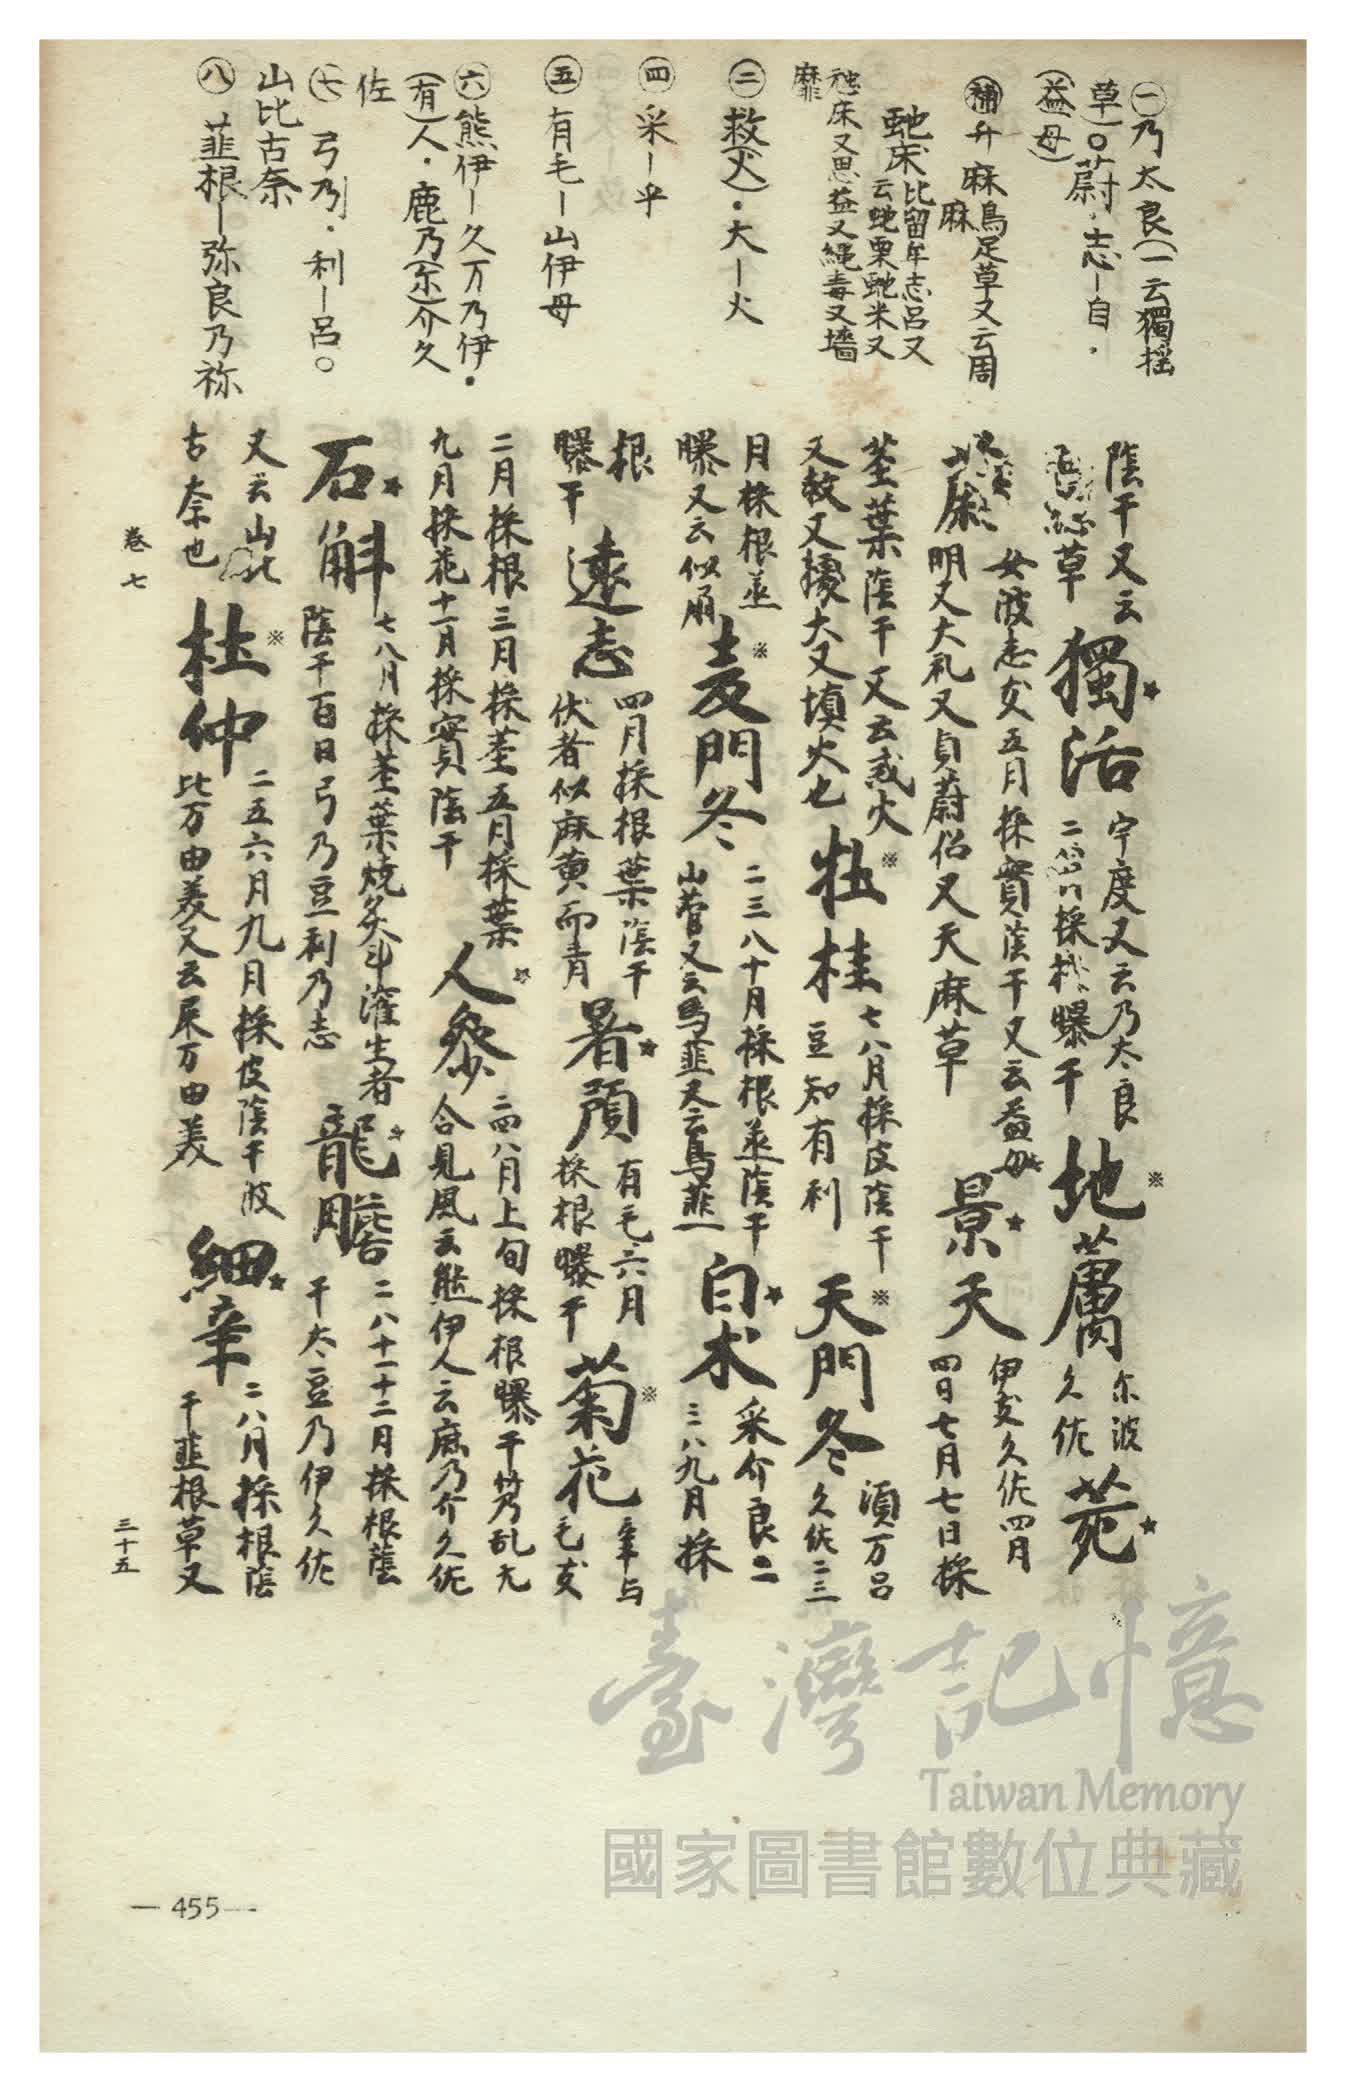 ㊀乃太良(一云獨揺
草)○蔚·志ー自·
(益母)
㊢升麻鳥足草又云周
麻
虵床比留牟志呂又
云虵栗虵米又
虺床又思益又繩毒又墻
蘼
㊁救(火)·大ー火
㊃采ー乎
㊄有毛ー山伊母
㊅熊伊ー久万乃伊·
(有)人·鹿乃(尓)介久
佐
㊆弓乃·利ー呂○
山比古奈
㊇韮根ー弥良乃祢
陰干又云
草
獨活
宇度又云乃太良
採 曝干
地膚
尓波
久佐
茺
蔚
女波志支五月採實陰干又云益母
明又大札又貞蔚侶又天麻草
景天
伊支久佐四月
四日七月七日採
莖葉陰干又云戒火
又救又擾大又填火也
牡桂
七八月採皮陰干
豆知有利
天門冬
須万呂
久佐二三
月採根蒸
曝又云似
麦門冬
二三八十月採根蒸陰干
山菅又云馬韮又云烏韮
白朮
采介良二
三八九月採
根
曝干
遠志
四月採根葉陰干
伏者似麻黄而青
暑預
有毛六月
採根曝干
菊花
辛与
毛支
二月採根三月採莖五月採葉
九月採花十一月採實陰干
人參
二四八月上旬採根曝干竹刀乱无
合見風云熊伊人云鹿乃介久佐
石斛
七八月採莖葉燒炙斗潅生者
陰干百日弓乃豆利乃志
龍膽
二八十一十二月採根陰
干太豆乃伊久佐
又云山比
古奈也
杜仲
二五六月九月採皮陰干波
比万由美又云尿万由美
細辛
二八月採根陰
干韮根草又
卷七
三十五
— 455 —
臺灣記憶
Taiwan Memory
國家圖書館數位典藏